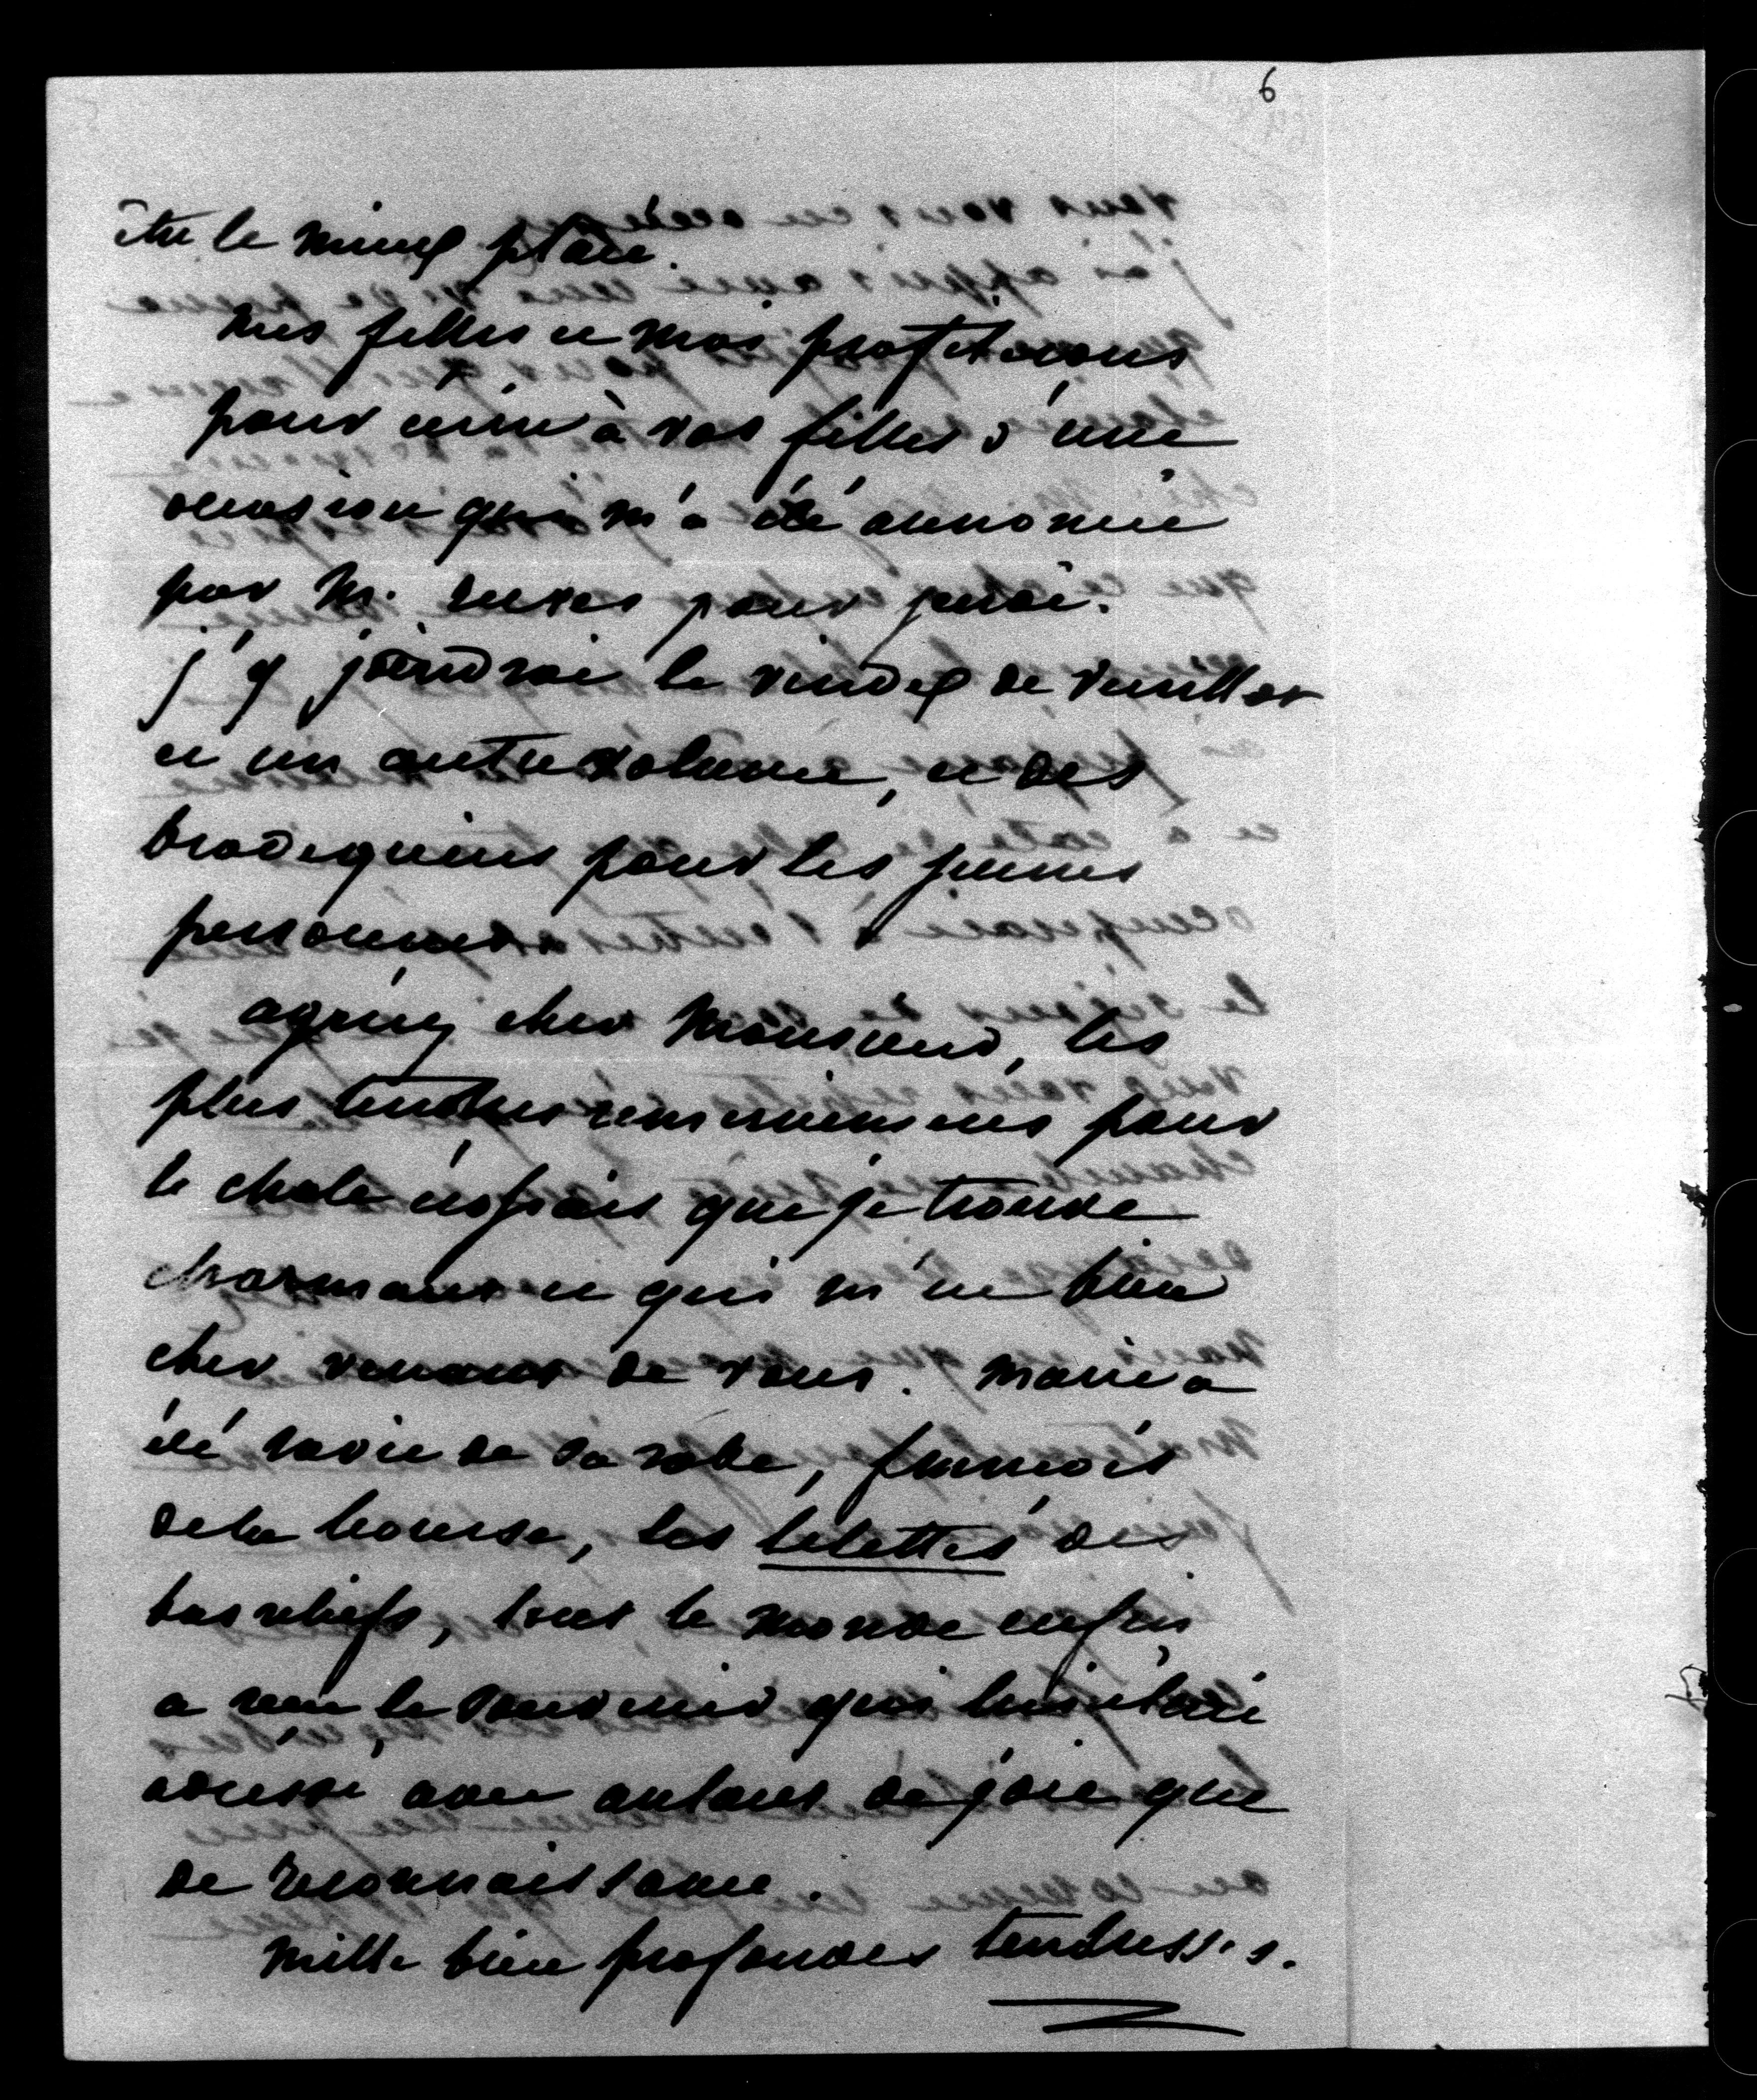 6
être le mieux placé.
mes filles et moi profiterons
pour écrire à vos filles d'une
occasion qui m'a été annoncée
par M. pour jeudi.
j'y joindrai le vindex de Veuillot
et un autre volume, et des
brodequins pour les jeunes
personnes.
agréez cher Monsieur, les
plus tendres remerciemens pour
le chale écossais que je trouve
charmant et qui m'est bien
cher venant de vous. Marie a
été ravie de sa robe, françois
de la bourse, les lelettes des
bas reliefs, tout le monde enfin
a reçu le souvenir qui lui était
adressé avec autant de joie que
de reconnaissance.
Mille bien profondes tendresses.